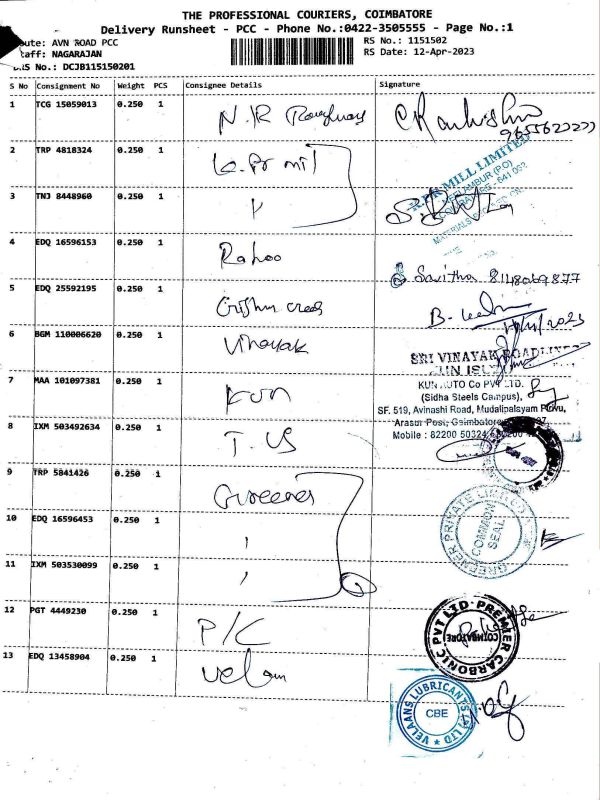 THE PROFESSIONAL COURIERS, COIMBATORE
Delivery Runsheet - PCC - Phone No.:0422-3505555 - Page No.:1
oute: AVN ROAD PCC
RS No.: 1151502
taff: NAGARAJAN
RS Date: 12-Apr-2023
RS No.: DCJB115150201
S No Consignment No Weight PCS Consignee Details Signature
1 TCG 15059013 0.250 1 N.R
2 TRP 4818324 0.250 1
MILL LIMITED
NEELAMBUR (PO)
3 TNJ 8448960 0.250 1
4 EDQ 16596153 0.250 1
Savitha
5 EDQ 25592195 0.250 1
6 BGM 110006620 0.250 1 Vinayak
SRI VINAYAK ROADLINES
7 MAA 101097381 0.250 1 KUN
KUN AUTO Co PVT LTD.
(Sidha Steels Campus),
SF. 519, Avinashi Road, Mudalipalsyam Pirivu,
Arasur Post, Coimbatore
Mobile : 82200 50324
8 IXM 503492634 0.250 1 T.US
9 TRP 5841426 0.250 1 Greener
10 EDQ 16596453 0.250 1
GREENER PRIVATE LIMITED
COMMON
SEAL
11 IXM 503530099 0.250 1
12 PGT 4449230 0.250 1 P/C
PREMIER CARBONIC PVT LTD
COIMBATORE
13 EDQ 13458904 0.250 1 Velan
VELAANS LUBRICANTS (P) LTD
CBE